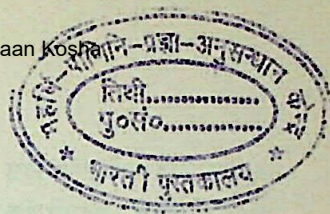 aan Kosha
महर्षि-पाणिनि-प्रज्ञा-अनुसन्धान केन्द्र
तिथी..............
पु०सं०..............
* भारती पुस्तकालय *